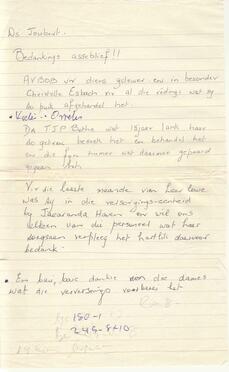 Ds Joubert.
Bedankings asseblief!!
AVBOB vir diens gelewer en in besonder
Christelle Esbach vir al die reëlings wat sy
so puik afgehandel het.
Dr TJP Botha wat 15 jaar lank haar
so getrou besoek het en behandel het
en die fyn humor wat daarmee gepaard
gegaan het.
Vir die laaste maande van haar lewe
was sy in die versorgings-eenheid
by Jacaranda Haven en wil ons
elkeen van die personeel wat haar
so verpleeg het hartlik daarvoor
bedank.
En baie, baie dankie aan die dames
wat die verversings voorberei het
180-1
249-8+10